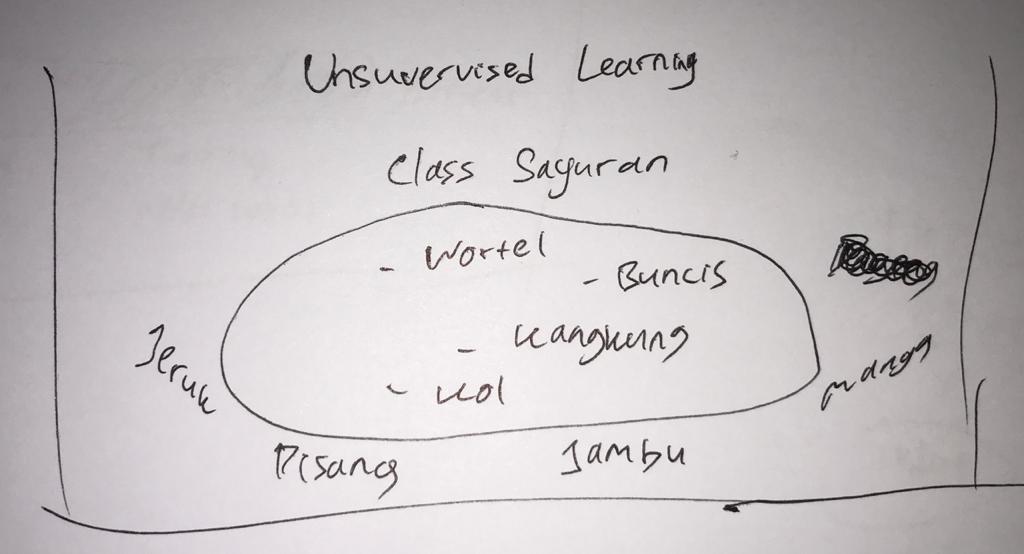 Unsuvervised Learning
Class Sayuran
- Wortel
- Buncis
- Kangkung
- Kol
Jeruk
Mangg
Pisang
Jambu